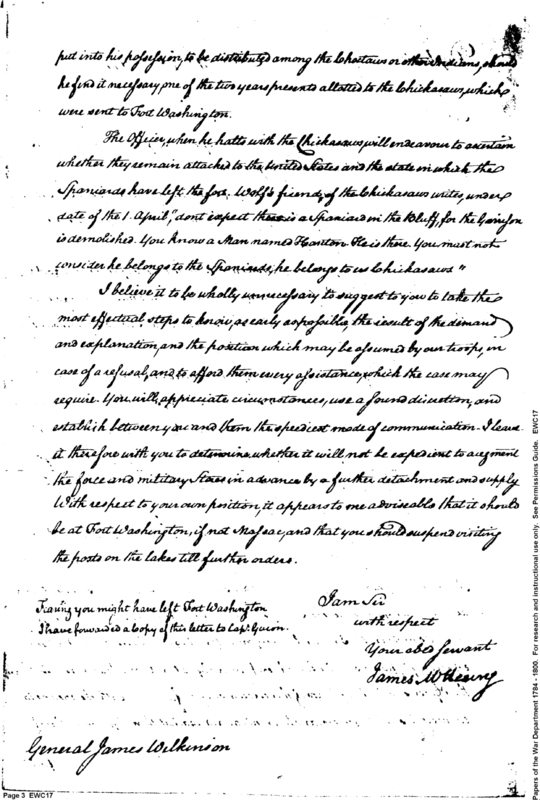 put into his possession, to be distributed among the Choctaws or other Indians, should
he find it necessary, one of the two years presents allotted to the Chickasaws, which
were sent to Fort Washington.
The Officer, when he halts with the Chickasaws, will endeavour to ascertain
whether they remain attached to the United States and the state in which the
Spaniards have left the fort. Wolf's friend, of the Chickasaws writes, under
date of the 1. April, "dont expect there is a Spaniard in the Bluff, for the Garrison
is demolished. You know a Man named He is there. You must not
consider he belongs to the Spaniards, he belongs to us Chickasaws"
I believe it to be wholly unnecessary to suggest to you to take the
most effectual steps to know, as early as possible, the result of the demand
and explanation, and the position which may be assumed by our troops, in
case of a refusal, and to afford them every assistance, which the case may
require. You will appreciate circumstances, use a sound discretion, and
establish between you and them the speediest mode of communication. I leave
it therefore with you to determine, whether it will not be expedient to augment
the force and military Stores in advance by a further detachment and supply.
With respect to your own position, it appears to me adviseable that it should
be at Fort Washington, if not Massac, and that you should suspend visiting
the posts on the lakes till further orders.
Fearing you might have left Fort Washington
I have forwarded a Copy of this letter to Capt. Guion.
I am Sir
with respect
Your obed servant
James McHenry
General James Wilkinson
Page 3 EWC17
Papers of the War Department 1784 - 1800. For research and instructional use only. See Permissions Guide. EWC17